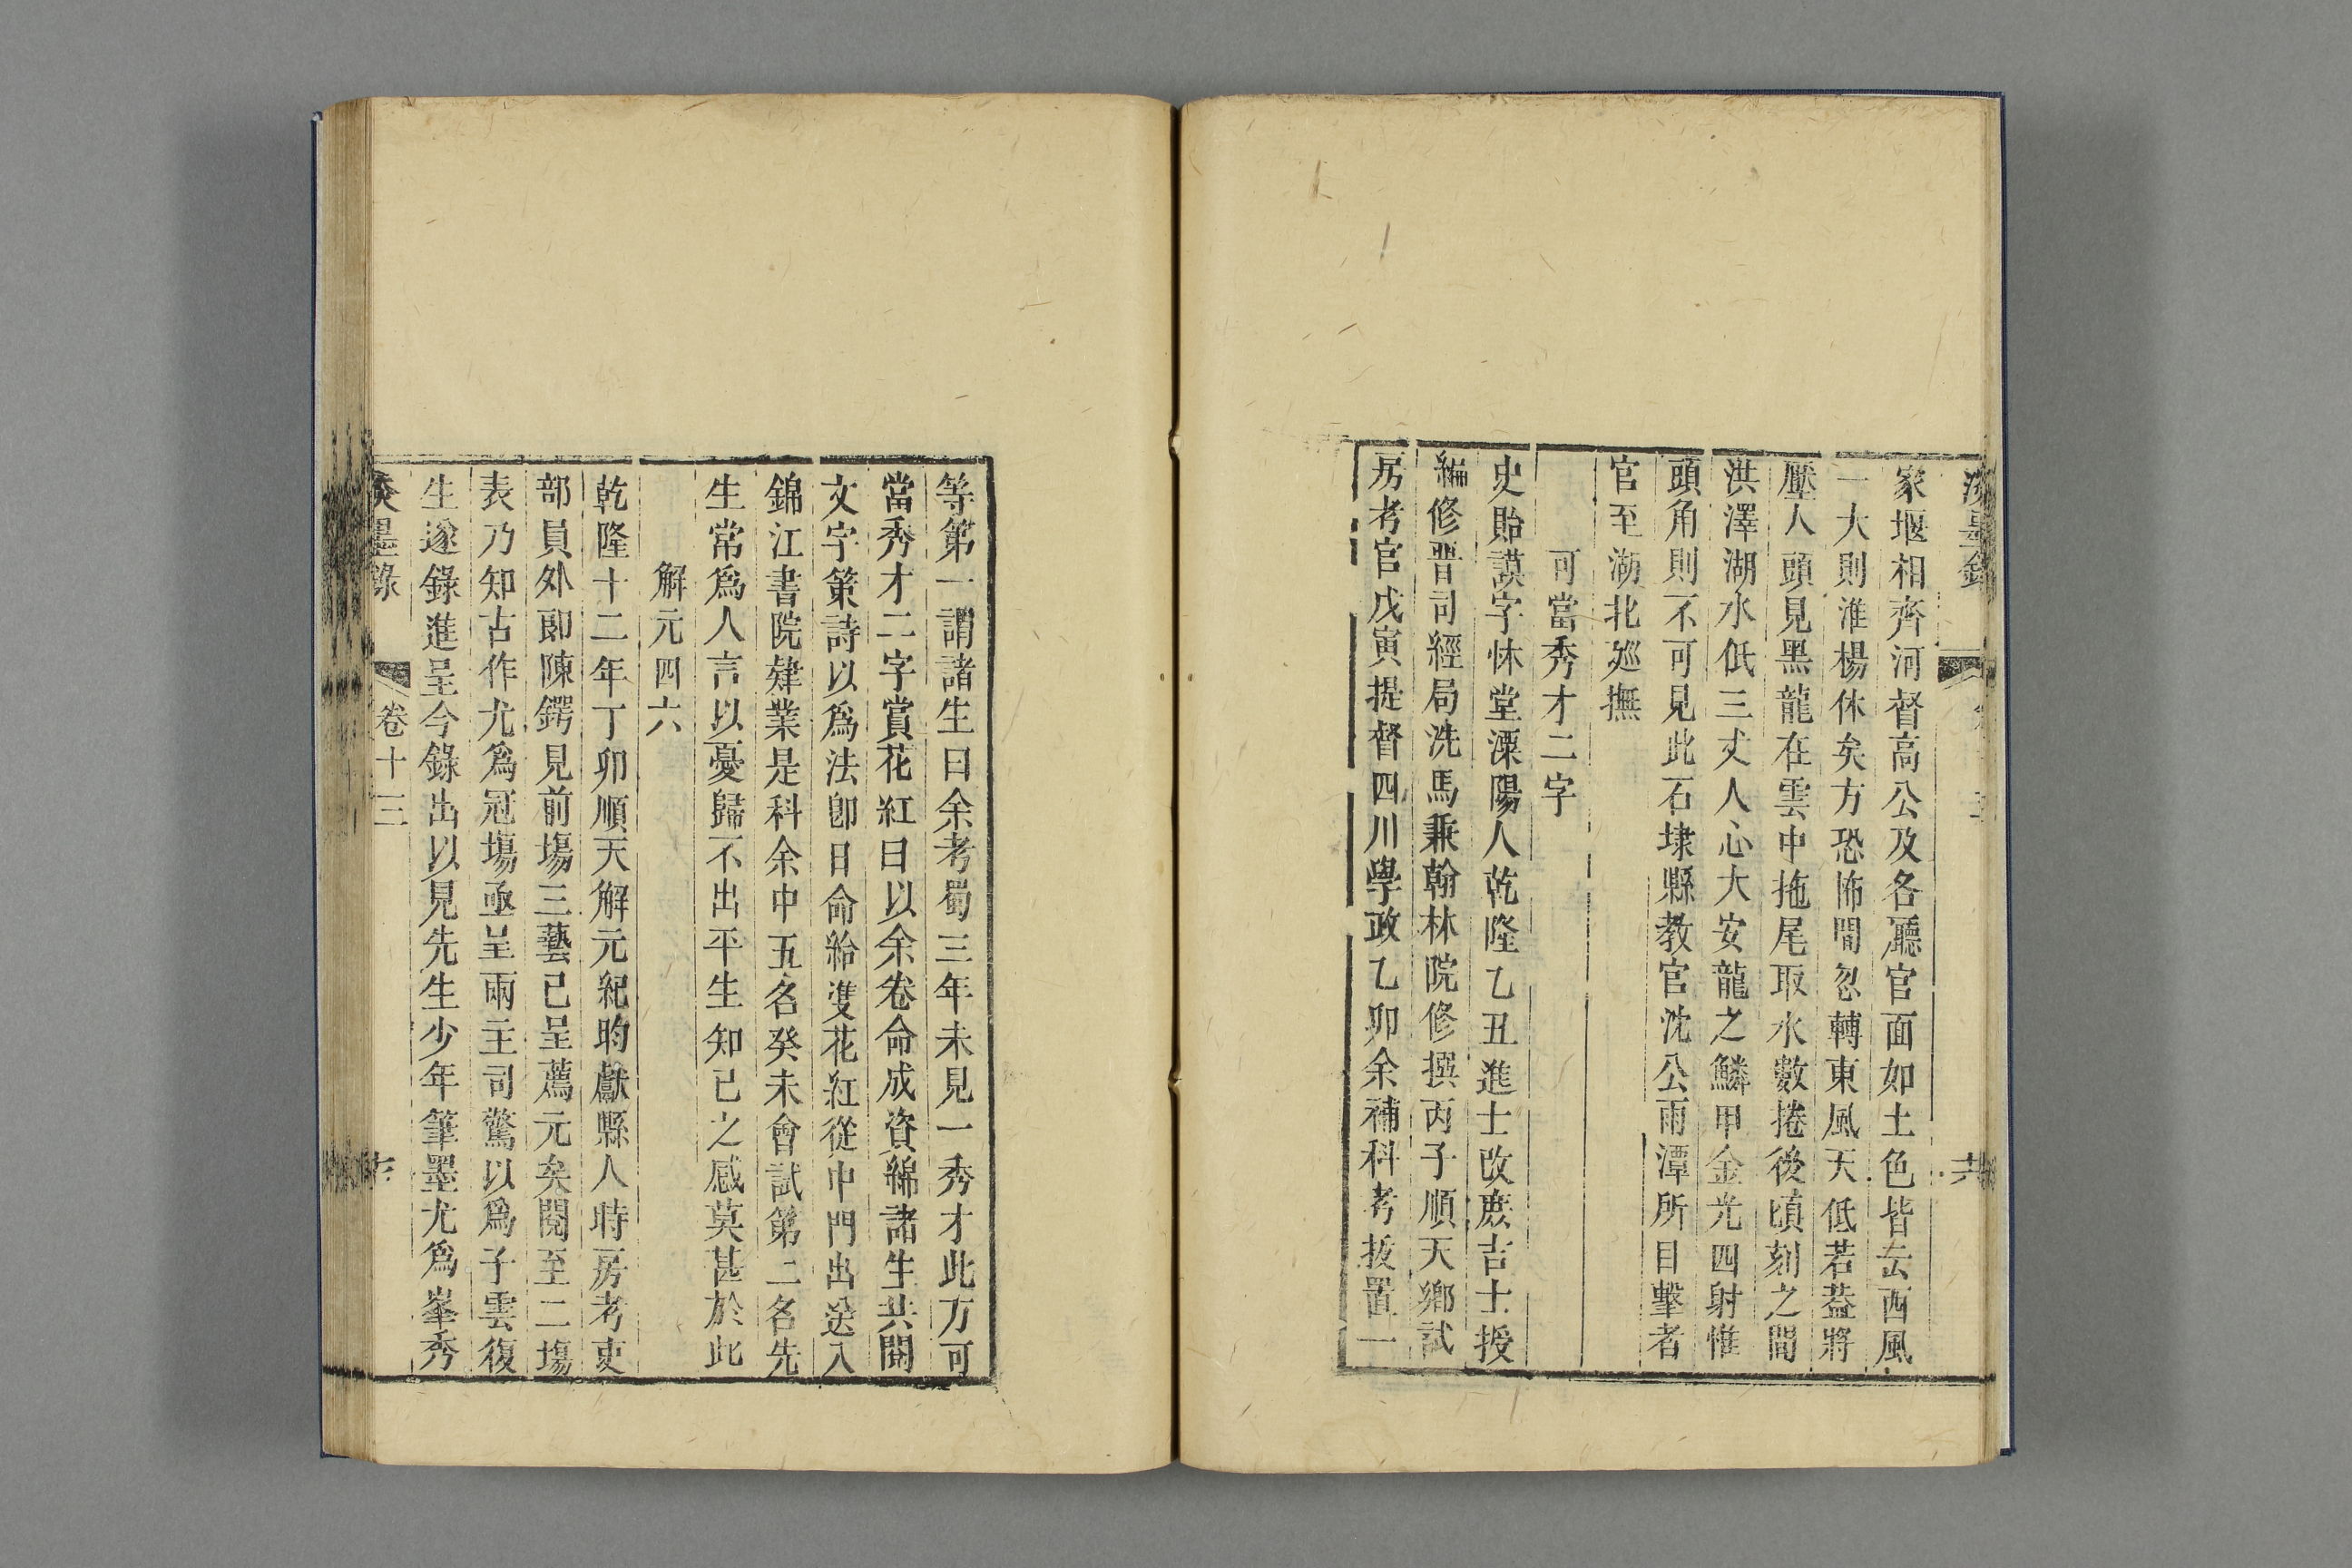 淡墨錄
家堰相齊河督高公及各廳官面如土色皆云西風
一大則淮楊休矣方恐怖間忽轉東風天低若葢將
壓人頭見黑龍在雲中拖尾取水數捲後頃刻之間
洪澤湖水低三丈人心大安龍之鱗甲金光四射惟
頭角則不可見此石埭縣教官沈公雨潭所目擊者
官至湖北廵撫
可當秀才二字
史貽謨字怵堂溧陽人乾隆乙丑進士改庶吉士授
編修晋司經局洗馬兼翰林院修撰丙子順天鄉試
房考官戊寅提督四川學政乙卯余補科考拔置一
等第一謂諸生曰余考蜀三年未見一秀才此方可
當秀才二字賞花紅曰以余卷命成資綿諸生共閱
文字策詩以爲法卽日命給雙花紅從中門出送入
錦江書院肄業是科余中五名癸未會試第二名先
生常爲人言以憂歸不出平生知已之感莫甚於此
解元四六
乾隆十二年丁卯順天解元紀昀獻縣人時房考吏
部員外郎陳鍔見前塲三藝已呈薦元矣閱至二塲
表乃知古作尤爲冠塲亟呈兩主司驚以爲子雲復
生遂錄進呈今錄出以見先生少年筆墨尤爲峯秀
淡墨錄 卷十三